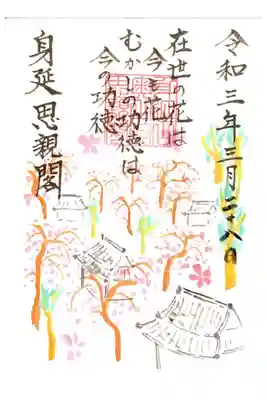 令和三年三月二十八日
在世の花は
今も花
むかしの功徳は
今の功徳
身延思親閣